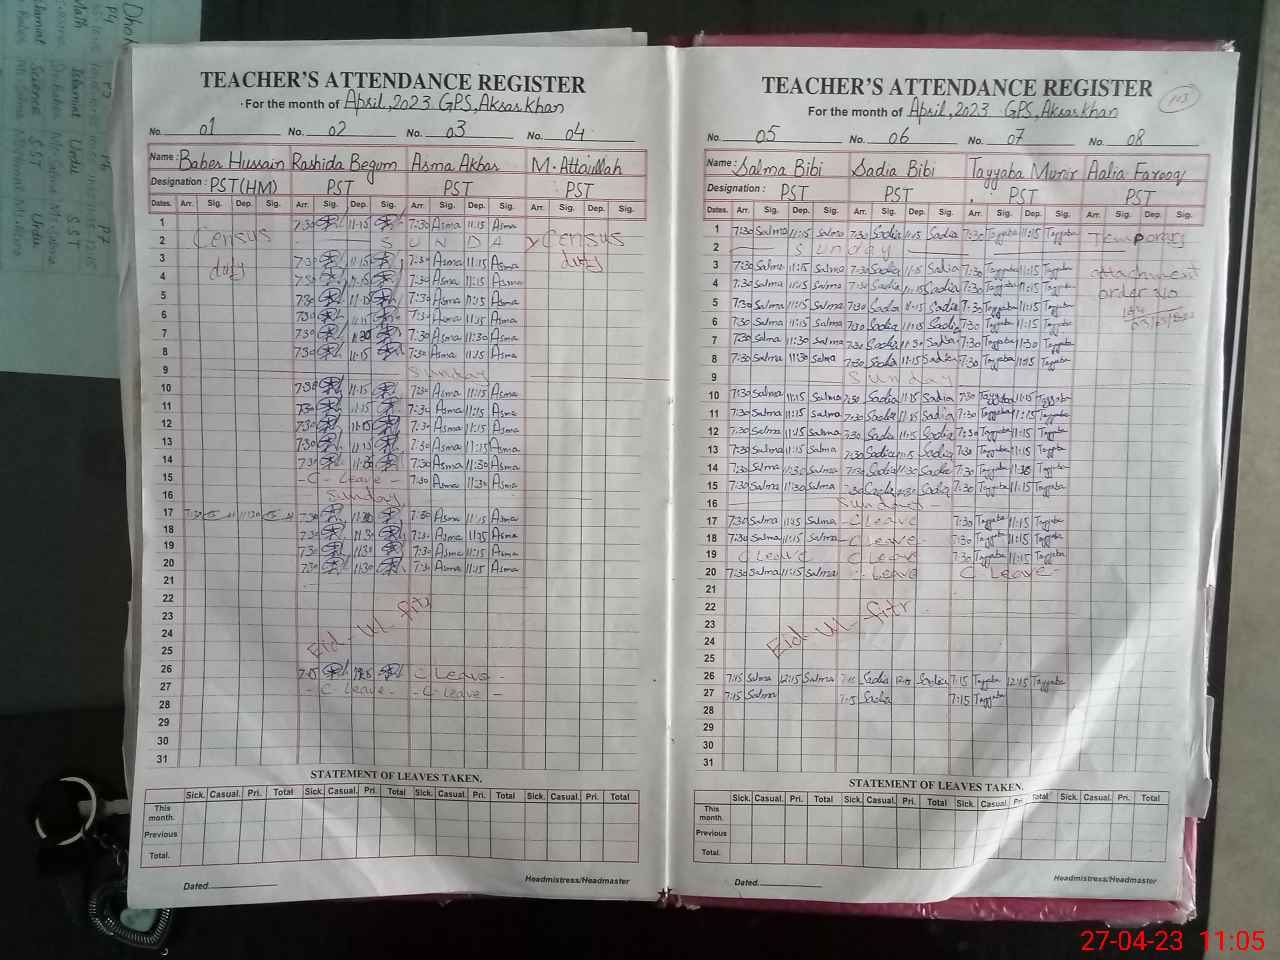 TEACHER'S ATTENDANCE REGISTER
For the month of April, 2023 GPS, Aksar Khan
No. 01 No. 02 No. 03 No. 04
Name : Baber Hussain Rashida Begum Asma Akbar M. Attaullah
Designation : PST (HM) PST PST PST
Dates. Arr. Sig. Dep. Sig. Arr. Sig. Dep. Sig. Arr. Sig. Dep. Sig. Arr. Sig. Dep. Sig.
1 Census 7:30 11:15 7:30 Asma 11:15 Asma
2 S U N D A Y Census
3 duty 7:30 11:15 7:30 Asma 11:15 Asma duty
4 7:30 11:15 7:30 Asma 11:15 Asma
5 7:30 11:15 7:30 Asma 11:15 Asma
6 7:30 11:15 7:30 Asma 11:15 Asma
7 7:30 11:30 7:30 Asma 11:30 Asma
8 7:30 11:15 7:30 Asma 11:15 Asma
9 Sunday
10 7:30 11:15 7:30 Asma 11:15 Asma
11 7:30 11:15 7:30 Asma 11:15 Asma
12 7:30 11:15 7:30 Asma 11:15 Asma
13 7:30 11:15 7:30 Asma 11:15 Asma
14 7:30 11:30 7:30 Asma 11:30 Asma
15 - C - Leave - 7:30 Asma 11:30 Asma
16 Sunday
17 7:30 11:30 7:30 11:30 7:30 Asma 11:15 Asma
18 7:30 11:30 7:30 Asma 11:15 Asma
19 7:30 11:30 7:30 Asma 11:15 Asma
20 7:30 11:30 7:30 Asma 11:15 Asma
21
22
23 Eid - Ul - fitr
24
25
26 7:15 C Leave -
27 - C Leave - - C - Leave -
28
29
30
31
STATEMENT OF LEAVES TAKEN.
Sick. Casual. Pri. Total Sick. Casual. Pri. Total Sick. Casual. Pri. Total Sick. Casual. Pri. Total
This month.
Previous
Total.
Dated.
Headmistress/Headmaster
TEACHER'S ATTENDANCE REGISTER
For the month of April, 2023 GPS, Aksar Khan
No. 05 No. 06 No. 07 No. 08
Name : Salma Bibi Sadia Bibi Tayyaba Munir Aalia Farooq
Designation : PST PST PST PST
Dates. Arr. Sig. Dep. Sig. Arr. Sig. Dep. Sig. Arr. Sig. Dep. Sig. Arr. Sig. Dep. Sig.
1 7:30 Salma 11:15 Salma 7:30 Sadia 11:15 Sadia 7:30 Tayyaba 11:15 Tayyaba Temporary
2 Sunday
3 7:30 Salma 11:15 Salma 7:30 Sadia 11:15 Sadia 7:30 Tayyaba 11:15 Tayyaba attachment
4 7:30 Salma 11:15 Salma 7:30 Sadia 11:15 Sadia 7:30 Tayyaba 11:15 Tayyaba order No
5 7:30 Salma 11:15 Salma 7:30 Sadia 11:15 Sadia 7:30 Tayyaba 11:15 Tayyaba
6 7:30 Salma 11:15 Salma 7:30 Sadia 11:15 Sadia 7:30 Tayyaba 11:15 Tayyaba
7 7:30 Salma 11:30 Salma 7:30 Sadia 11:30 Sadia 7:30 Tayyaba 11:30 Tayyaba
8 7:30 Salma 11:30 Salma 7:30 Sadia 11:15 Sadia 7:30 Tayyaba 11:15 Tayyaba
9 Sunday
10 7:30 Salma 11:15 Salma 7:30 Sadia 11:15 Sadia 7:30 Tayyaba 11:15 Tayyaba
11 7:30 Salma 11:15 Salma 7:30 Sadia 11:15 Sadia 7:30 Tayyaba 11:15 Tayyaba
12 7:30 Salma 11:15 Salma 7:30 Sadia 11:15 Sadia 7:30 Tayyaba 11:15 Tayyaba
13 7:30 Salma 11:15 Salma 7:30 Sadia 11:15 Sadia 7:30 Tayyaba 11:15 Tayyaba
14 7:30 Salma 11:30 Salma 7:30 Sadia 11:30 Sadia 7:30 Tayyaba Tayyaba
15 7:30 Salma 11:30 Salma 7:30 Sadia 11:30 Sadia 7:30 Tayyaba 11:15 Tayyaba
16 Sunday -
17 7:30 Salma 11:15 Salma - C Leave 7:30 Tayyaba 11:15 Tayyaba
18 7:30 Salma 11:15 Salma - C Leave - 7:30 Tayyaba 11:15 Tayyaba
19 C Leave C Leave 7:30 Tayyaba 11:15 Tayyaba
20 7:30 Salma 11:15 Salma Leave C Leave -
21
22
23 Eid - Ul - fitr
24
25
26 7:15 Salma 12:15 Salma 7:15 Sadia Sadia 7:15 Tayyaba 12:15 Tayyaba
27 7:15 Salma 7:15 Sadia 7:15 Tayyaba
28
29
30
31
STATEMENT OF LEAVES TAKEN.
Sick. Casual. Pri. Total Sick. Casual. Pri. Total Sick. Casual. Pri. Total Sick. Casual. Pri. Total
This month.
Previous
Total.
Dated.
Headmistress/Headmaster
27-04-23 11:05